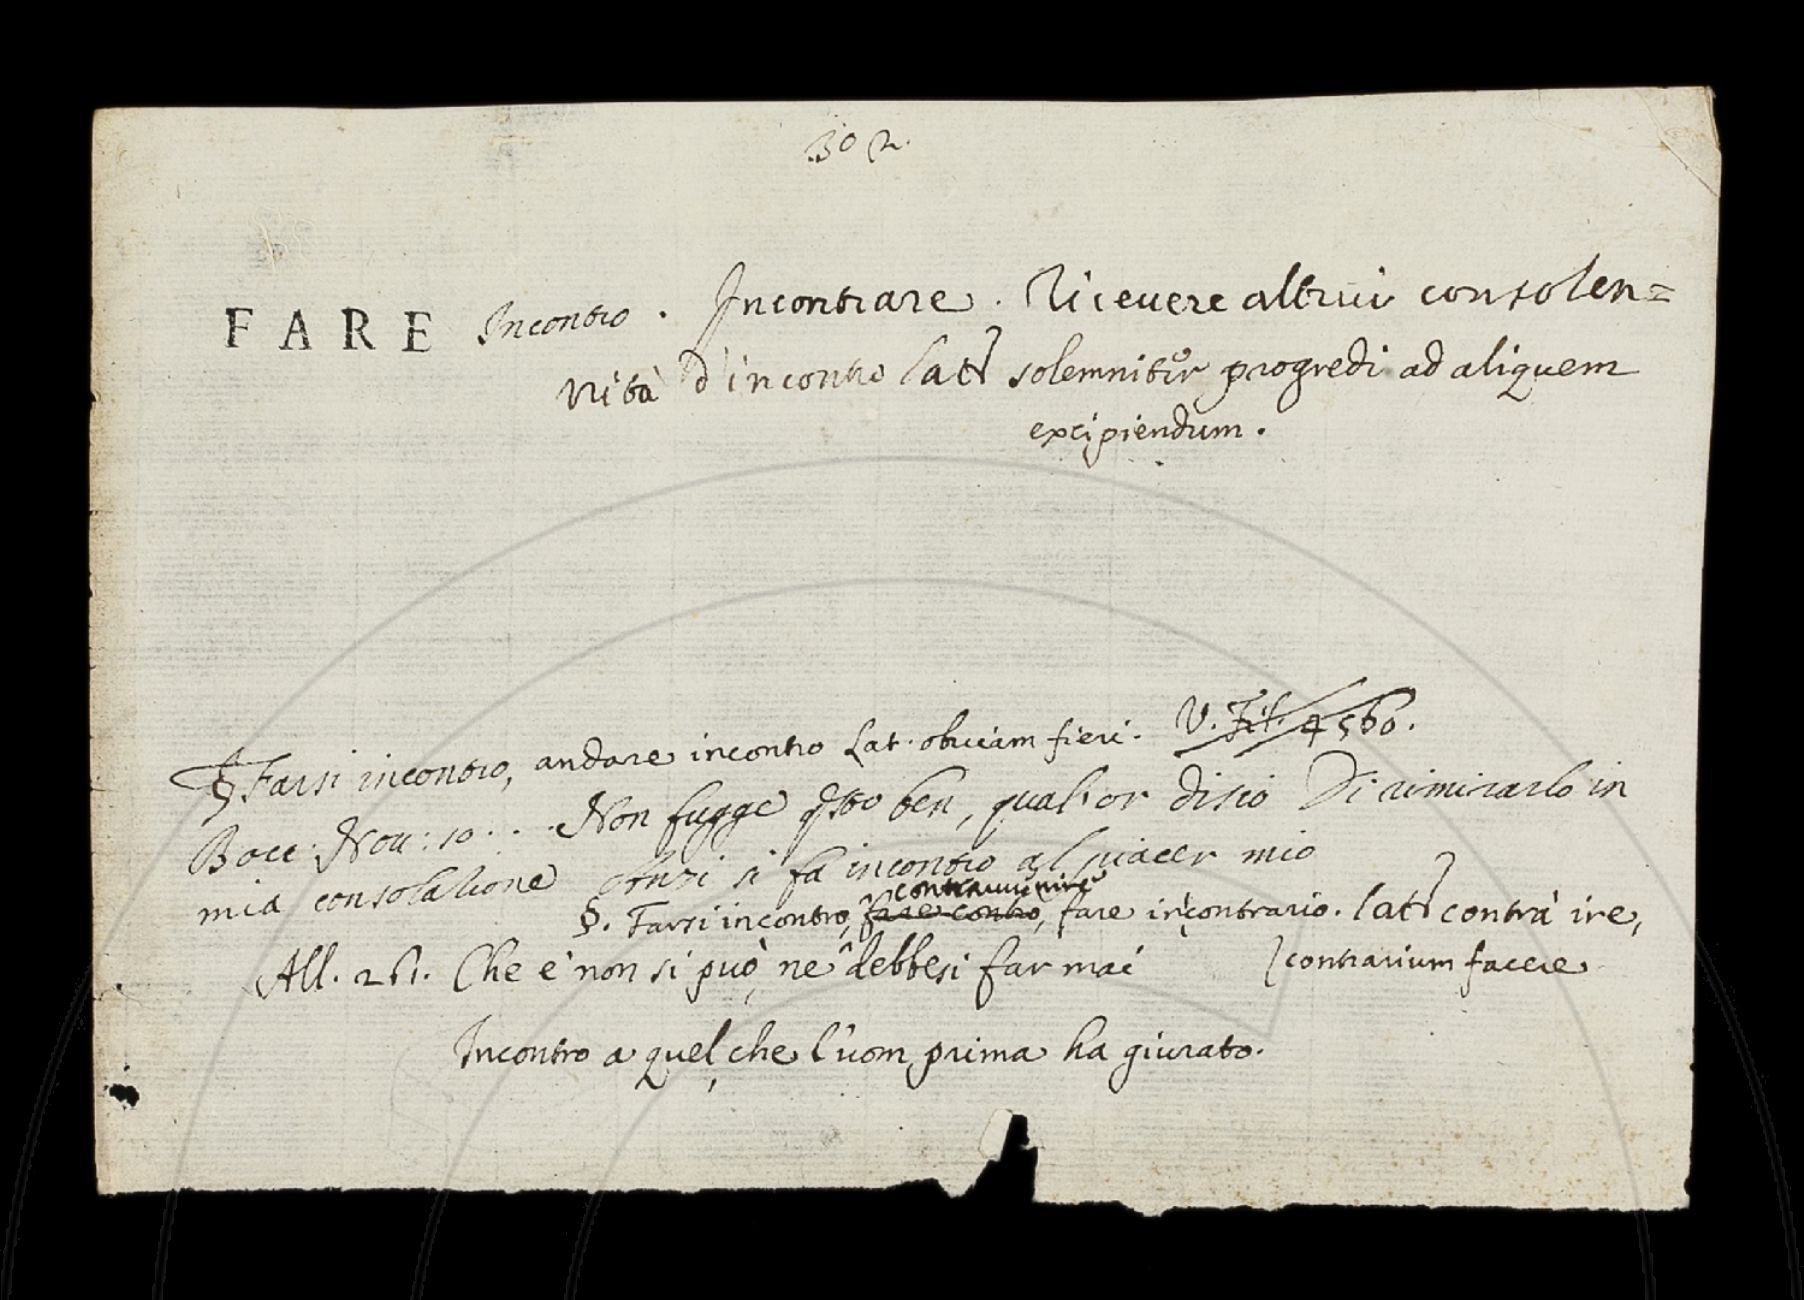 302.
FARE Incontro. Incontrare. Ricevere altrui con solen=
nità d'incontro lat. solemnitur progredi ad aliquem
excipiendum.
§ Farsi incontro, andare incontro Lat. obviam fieri. V. Fil. 4560.
Bocc. Nov: 10. . . Non fugge qsto ben, qual'or disio Di rimirarlo in
mia consolatione anzi si fà incontro al piacer mio
contravvenire
§. Farsi incontro, fare contro, fare in contrario. lat. contrà ire,
contrarium facere
All. 261. Che e' non si può, ne debbesi far mai
Incontro a quel, che l'uom prima ha giurato.